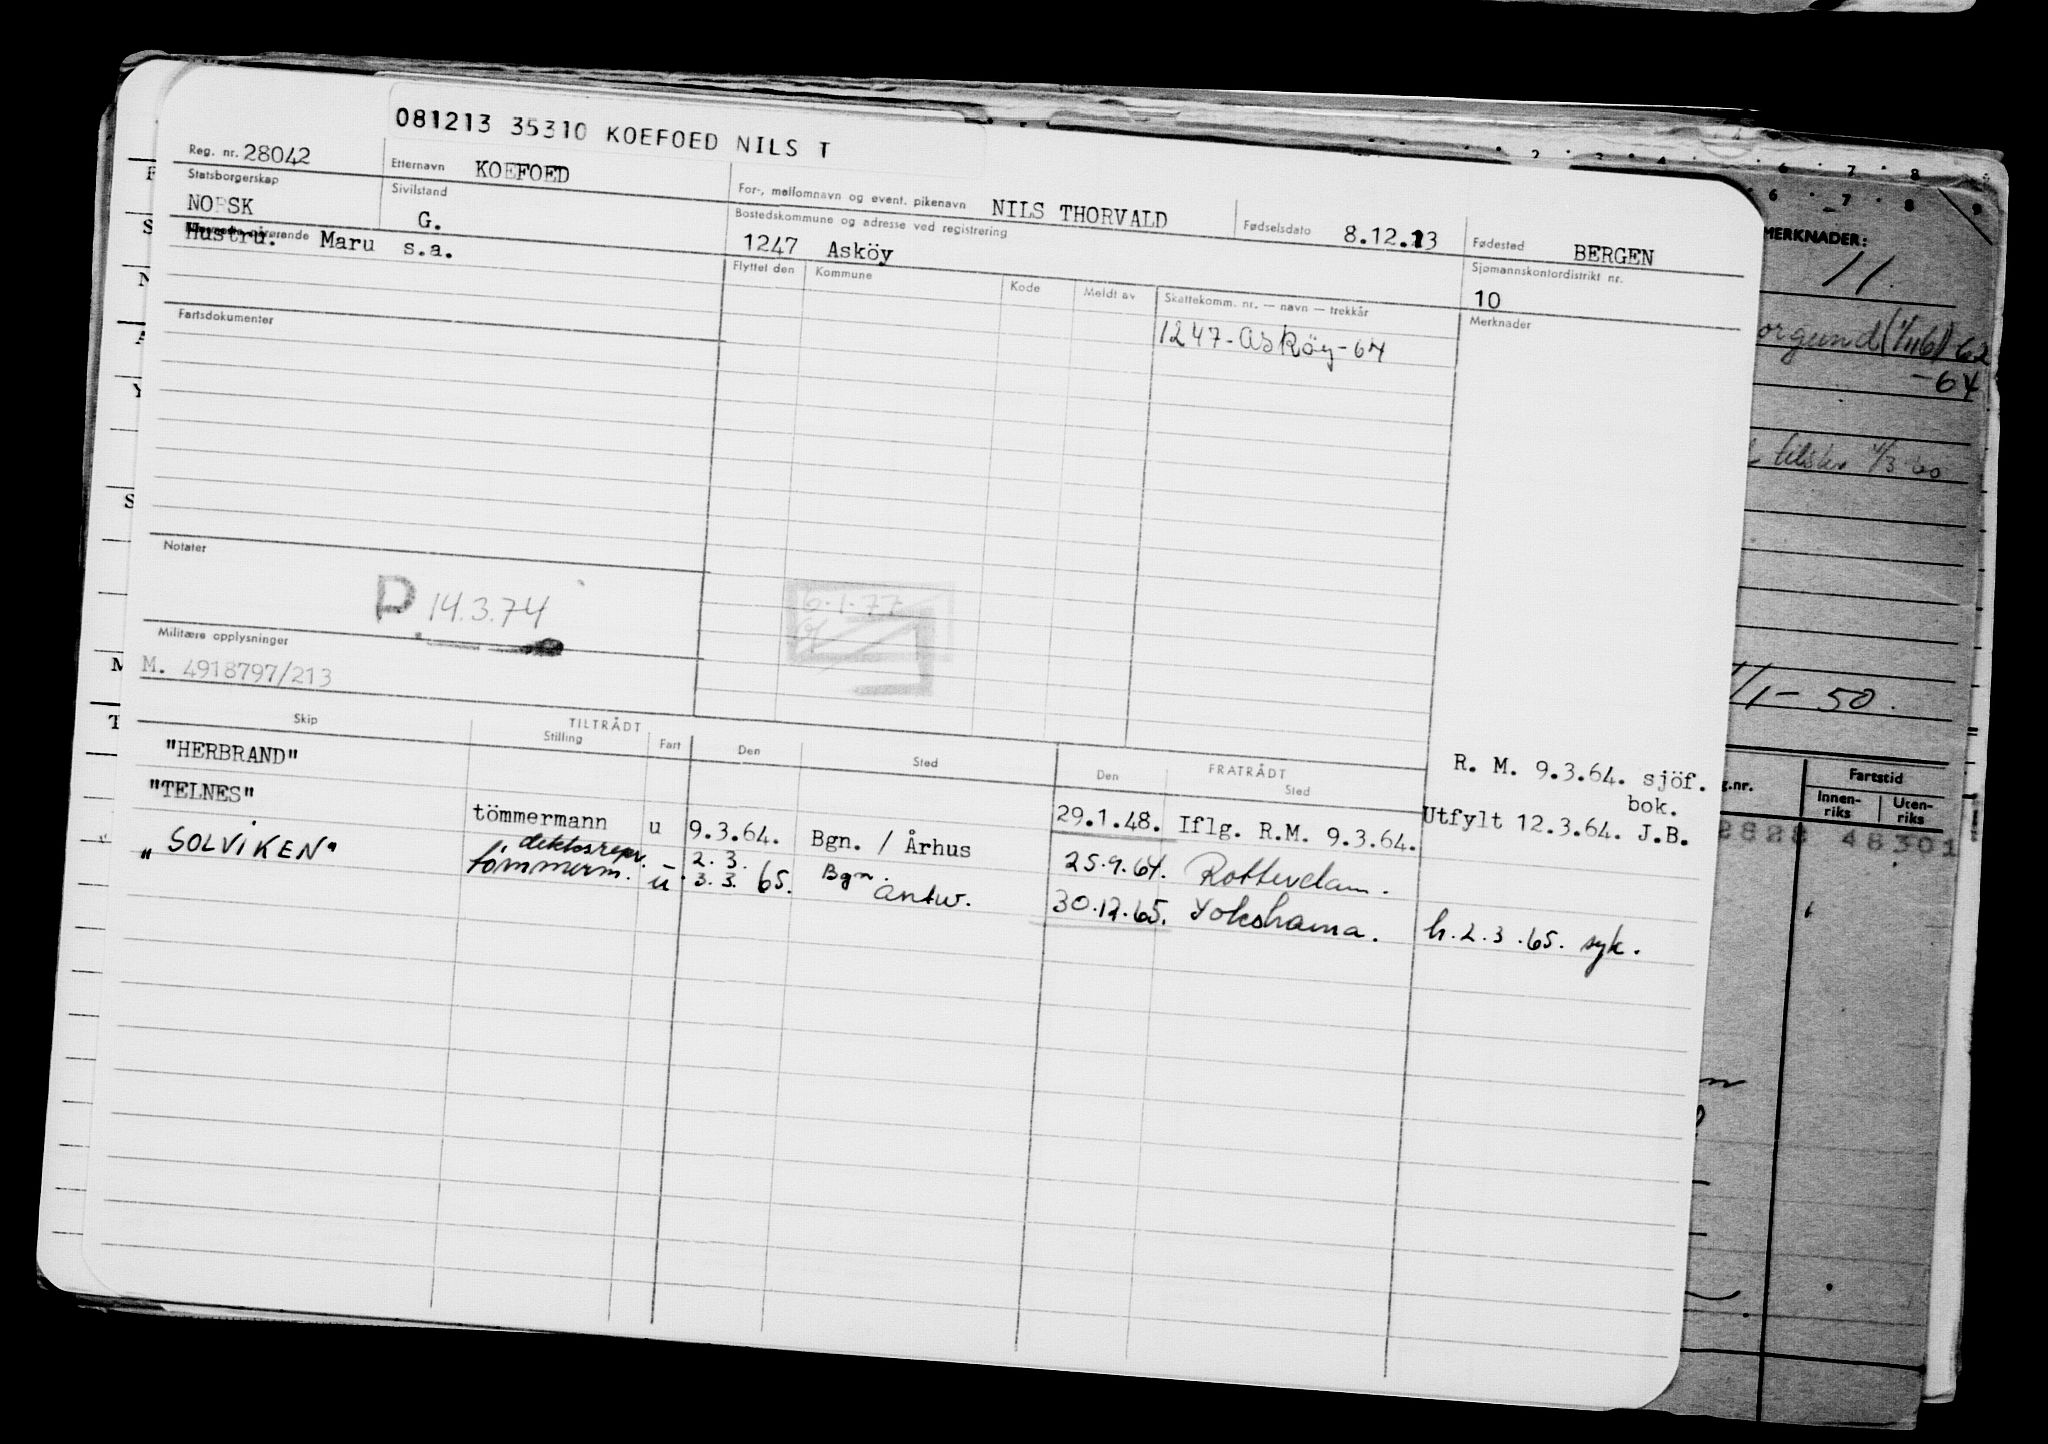 081213 35310 KOEFOED NILS T
Reg. nr. 28042 Etternavn KOEFOED For-, mellomnavn og event. pikenavn NILS THORVALD Fødselsdato 8.12.13 Fødested BERGEN
Statsborgerskap NORSK Sivilstand G. Bostedskommune og adresse ved registrering 1247 Asköy Sjømannskontordistrikt nr. 10
Hustru: Maru s.a.
Flyttet den Kommune Kode Meldt av Skattekomm. nr. — navn — trekkår Merknader
1247-Asköy-64
Fartsdokumenter
Notater
D 14.3.74
6.1.77
Militære opplysninger
M. 4918797/213
Skip TILTRÅDT Stilling Fart Den Sted FRATRÅDT Den Sted
R. M. 9.3.64. sjöf. bok.
"HERBRAND" 29.1.48. Iflg. R.M. 9.3.64. Utfylt 12.3.64. J.B.
"TELNES" tömmermann u 9.3.64. Bgn. / Århus 25.9.64. Rotterdam.
"SOLVIKEN" dekksrepr. tömmerm. u 2.3. 3.3. 65. Bgn. Antw. 30.12.65. Yokohama. h.2.3.65. syk.
2 3 4 6 7 8
6 7 8 9
MERKNADER:
11.
orgund (1/116) 62
-64
1/1-50.
g.nr. Fartstid
Innen-riks Uten-riks
2828 48301